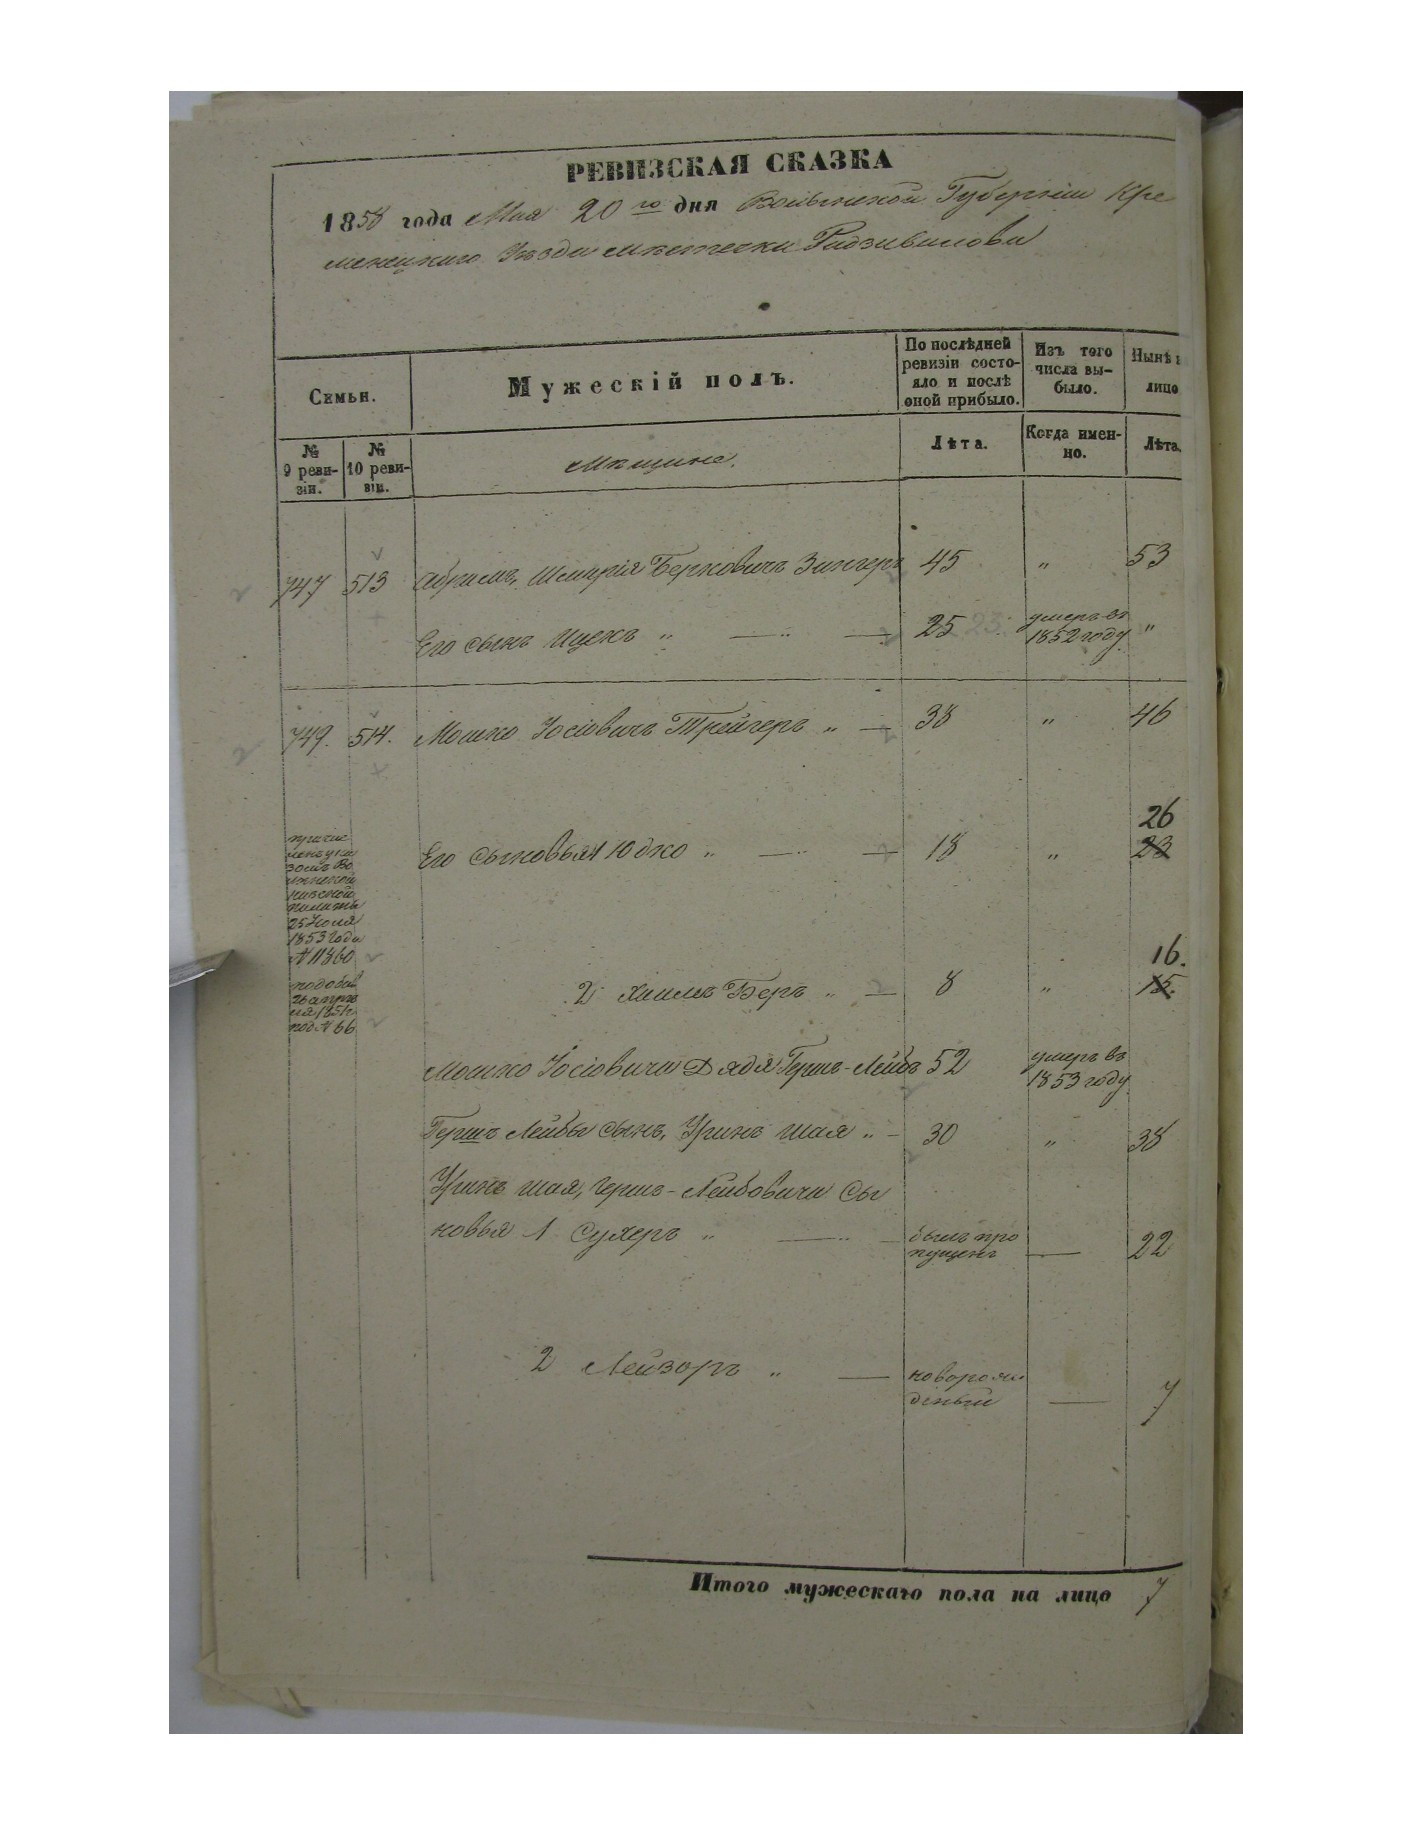 РЕВИЗСКАЯ СКАЗКА
1858 года Мая 20го дня Волынской Губерніи Кре
менецкаго Уѣзда мѣстечка Радзивилова
Семьи.
Мужескій полъ.
По послѣдней ревизіи состо-
яло и послѣ
оной прибыло.
Изъ того
числа вы-
было.
Нынѣ
лицо
№
9 реви-
зіи.
№
10 реви-
зіи.
Мѣщане.
Лѣта.
Когда имен-
но.
Лѣта.
747 513 Абрамъ, Шмарія Берковичъ Зингеръ 45 „ 53
Его сынъ Ицекъ „ — „ — 25 23 умеръ въ 1852 году „
749. 514. Мошко Іосіовичъ Трейгеръ „ — 38 „ 46
26
Его сыновья 1 Юдко „ — — 18 „ 23
причис
ленъ ука
зомъ Во
лынской
казеной
палаты
25 Іюля
1853 года
№ 11360
16.
2 Хаимъ Беръ „ — 8 „ 15.
26 апрѣ
ля 1851г
под № 66
Мошко Іосіовича Дядя Гершъ-Лейбъ 52 умеръ въ 1853 году
Гершъ Лейбы сынъ, Уринъ Шая „ — 30 „ 38
Уринъ Шая, Гершъ-Лейбовича сы
новья 1 Сухеръ „ — „ — былъ про
пущенъ — 22
2 Лейзоръ „ — новорож
деный — 7
Итого мужескаго пола на лицо 7